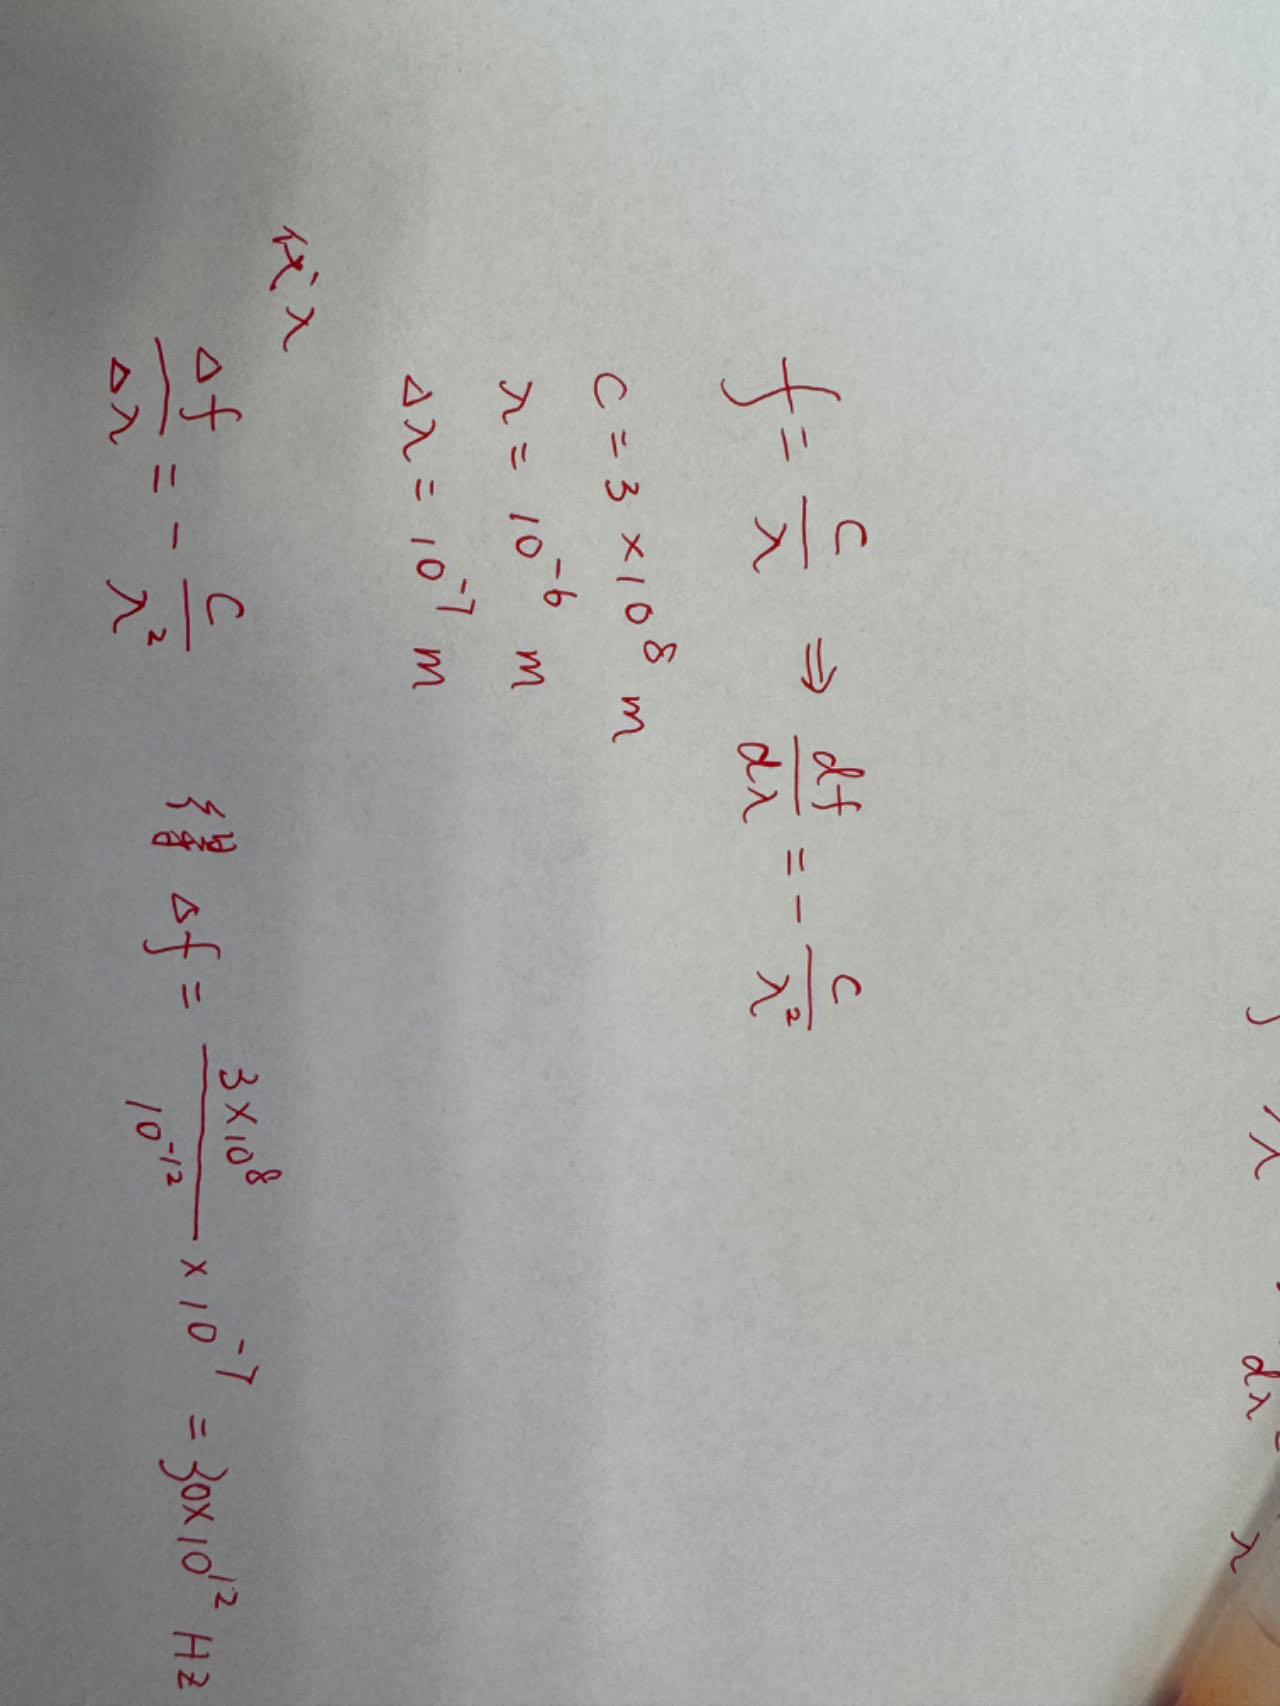 f = c/λ ⇒ df/dλ = - c/λ²
c = 3 × 10⁸ m
λ = 10⁻⁶ m
Δλ = 10⁻⁷ m
代入
Δf/Δλ = - c/λ² 得 Δf = 3×10⁸/10⁻¹² × 10⁻⁷ = 30×10¹² Hz